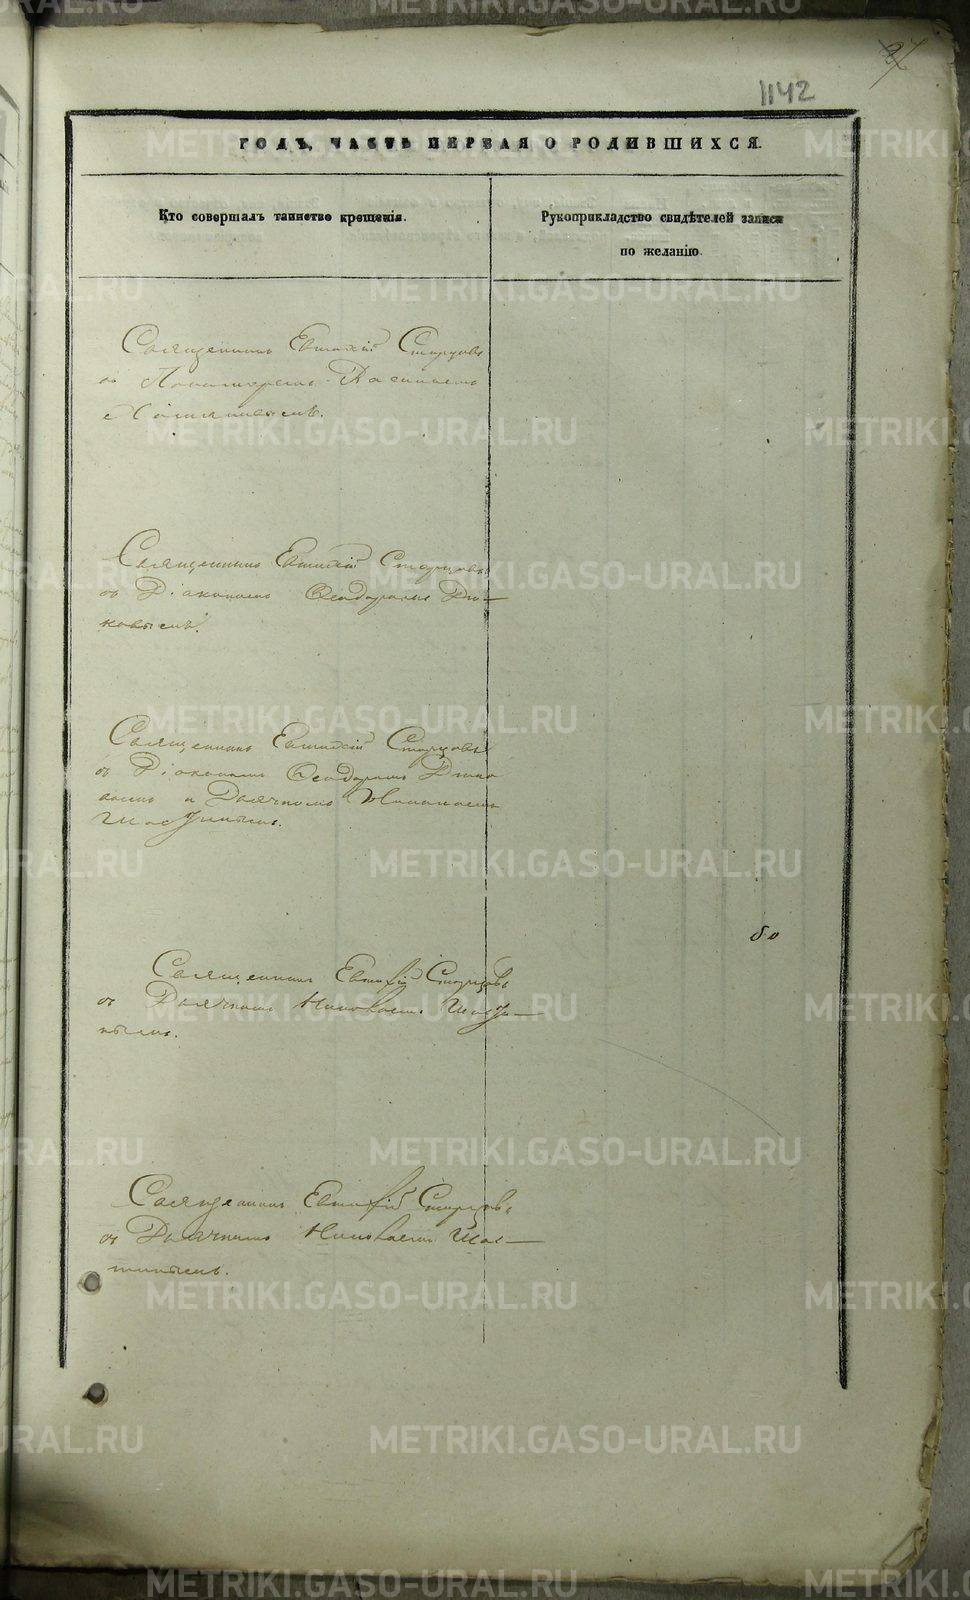 1142
ГОДЪ, ЧАСТЬ ПЕРВАЯ О РОДИВШИХСЯ.
Кто совершалъ таинство крещенія.
Рукоприкладство свидѣтелей записи
по желанію.
Священникъ Евтихій Старцовъ
съ Пономаремъ
Священникъ Евтихій Старцовъ
съ Діакономъ Ѳеодоромъ Ди-
ковымъ.
Священникъ Евтихій Старцовъ
съ Діакономъ Ѳеодоромъ
и Дьячкомъ Николаемъ
Священникъ Евтихій Старцовъ
съ Дьячкомъ Николаемъ
Священникъ Евтихій Старцовъ
съ Дьячкомъ Николаемъ
METRIKI.GASO-URAL.RU